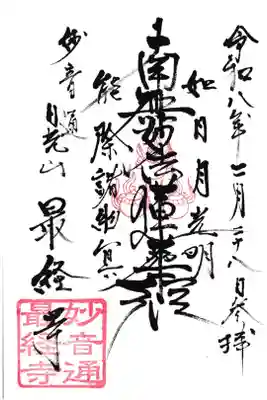 令和八年二月二十八日参拝
如日月光明
南無妙法蓮華経
能除諸幽冥
妙音通
最経寺
妙音通
最経寺